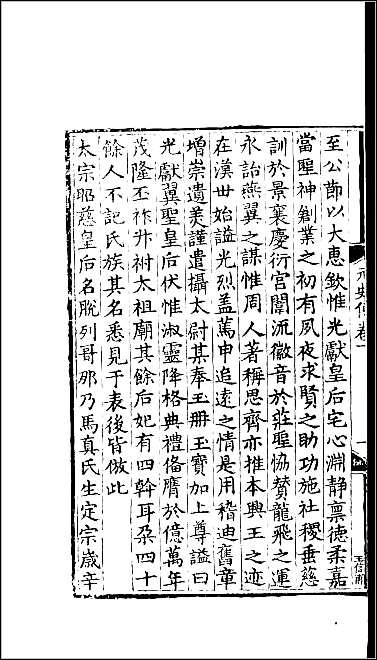 至公節以大惠欽惟光獻皇后宅心淵靜禀德柔嘉
當聖神創業之初有夙夜求賢之助功施社稷垂慈
訓於景襄慶衍宫闈流徽音於莊聖恊贊龍飛之運
永詒燕翼之謀惟周人著稱思齊亦推本興王之迹
在漢世始謚光烈盖萬申追遠之情是用稽迪舊章
增崇遺美謹遣攝太尉某奉玉册玉寳加上尊謚曰
光獻翼聖皇后伏惟淑靈降格典禮俻膺於億萬年
茂隆丕祚升祔太祖廟其餘后妃有四斡耳朶四十
餘人不記氏族其名悉見于表後皆倣此
太宗昭慈皇后名脫列哥那乃馬真氏生定宗歲辛
元史傳卷一